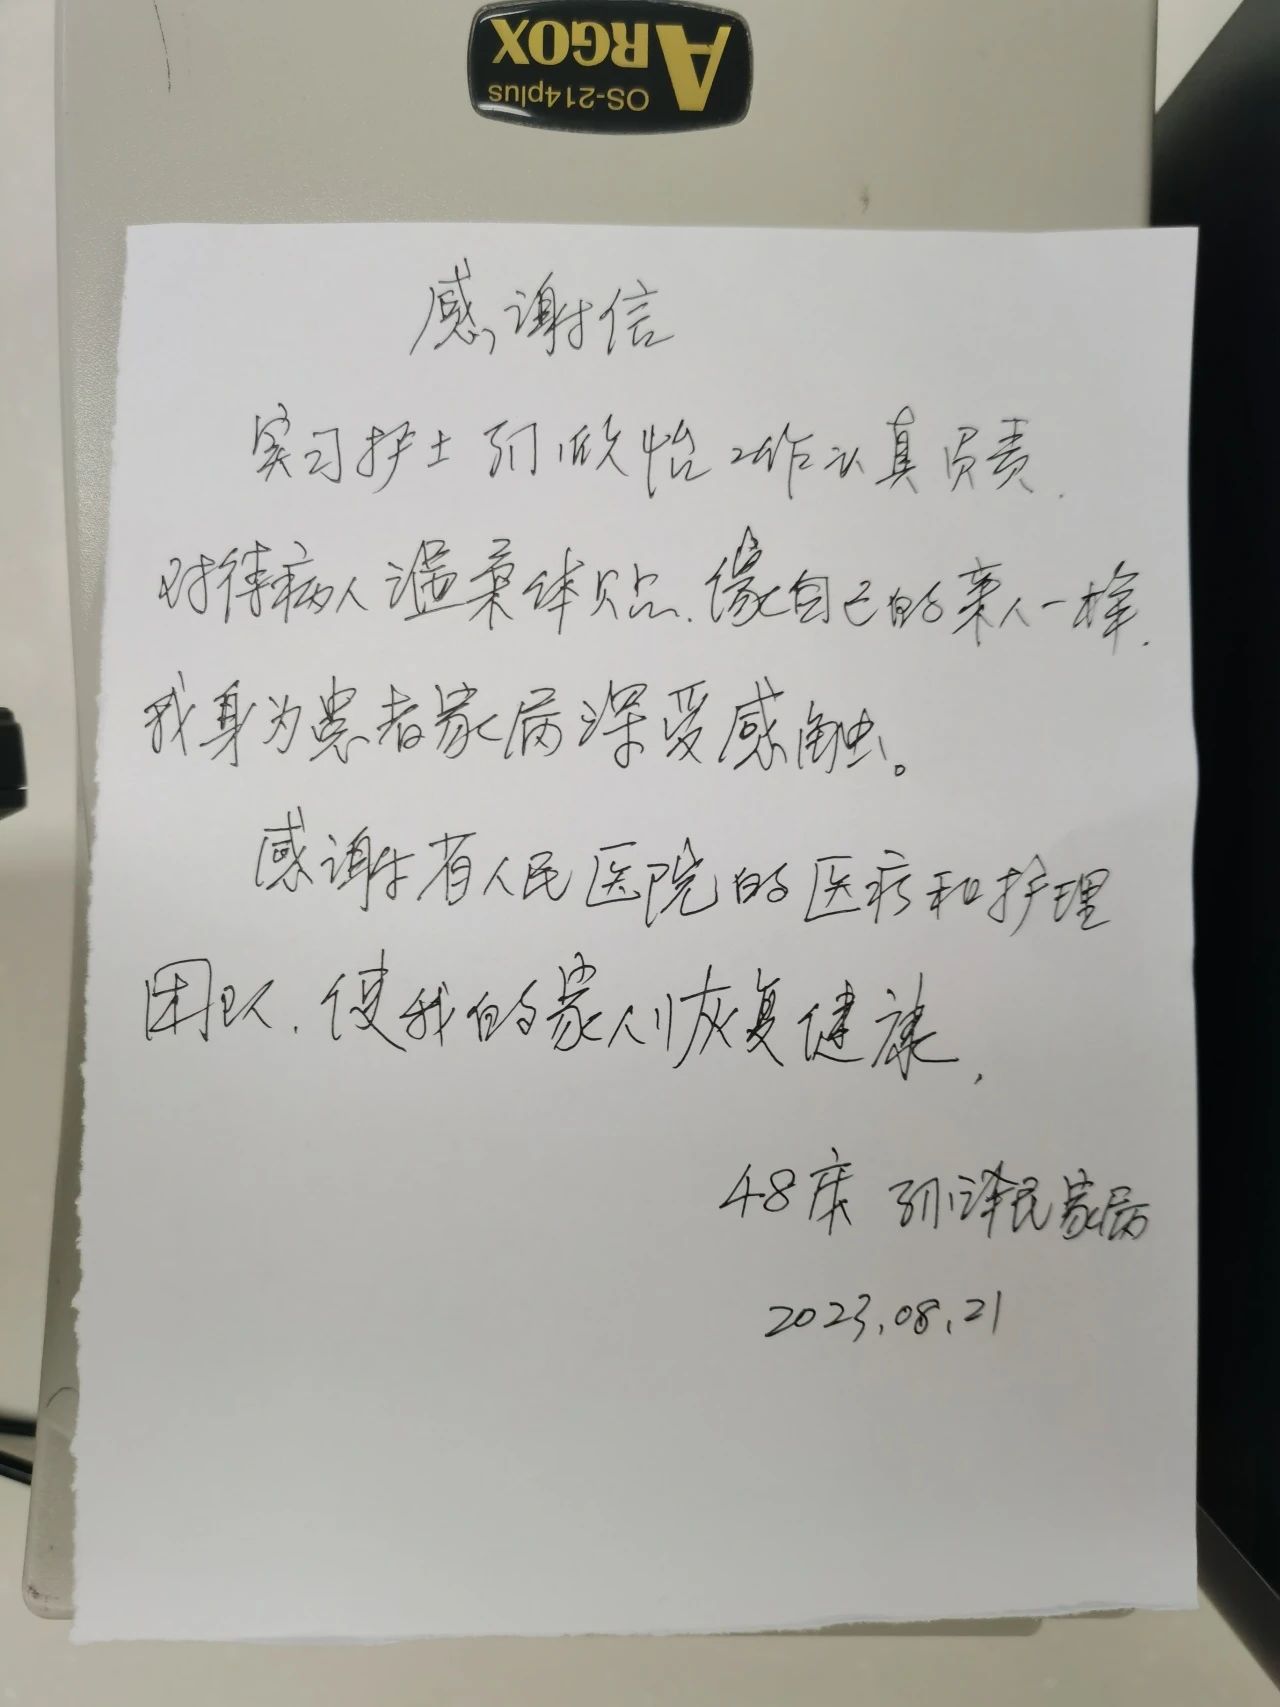 ARGOX
OS-214plus
感谢信
实习护士刘欣怡工作认真负责.
对待病人温柔体贴.像自己的亲人一样.
我身为患者家属深受感触。
感谢省人民医院的医疗和护理
团队.使我的家人恢复健康.
48床 刘泽民家属
2023.08.21